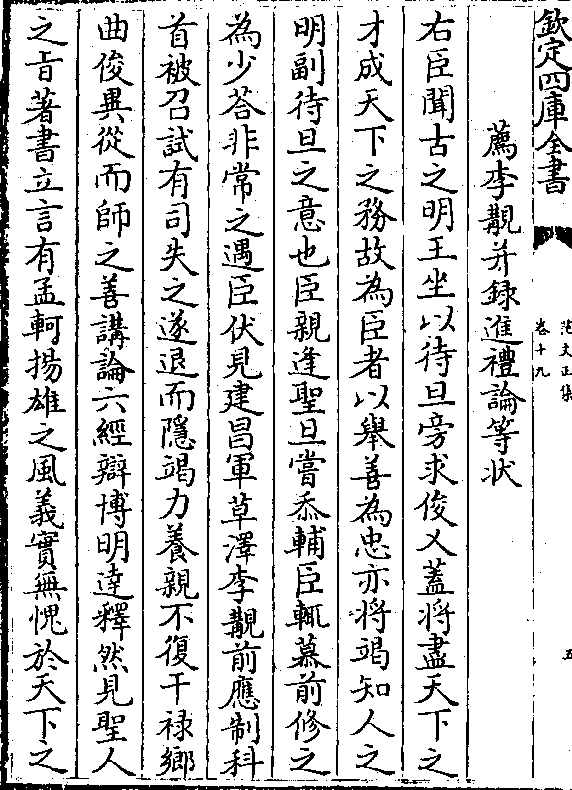 欽定四庫全書
范文正集
卷十九
五
薦李覯并錄進禮論等狀
右臣聞古之明王坐以待旦旁求俊乂蓋將盡天下之
才成天下之務故為臣者以舉善為忠亦將竭知人之
明副待旦之意也臣親逢聖旦嘗忝輔臣輒慕前修之
為少荅非常之遇臣伏見建昌軍草澤李覯前應制科
首被召試有司失之遂退而隱竭力養親不復干祿鄉
曲俊異從而師之善講論六經辯博明達釋然見聖人
之旨著書立言有孟軻揚雄之風義實無愧於天下之